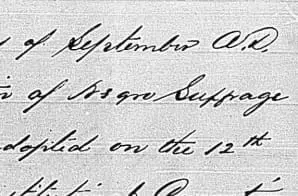 of September A.D.
of Negro Suffrage
adopted on the 12th